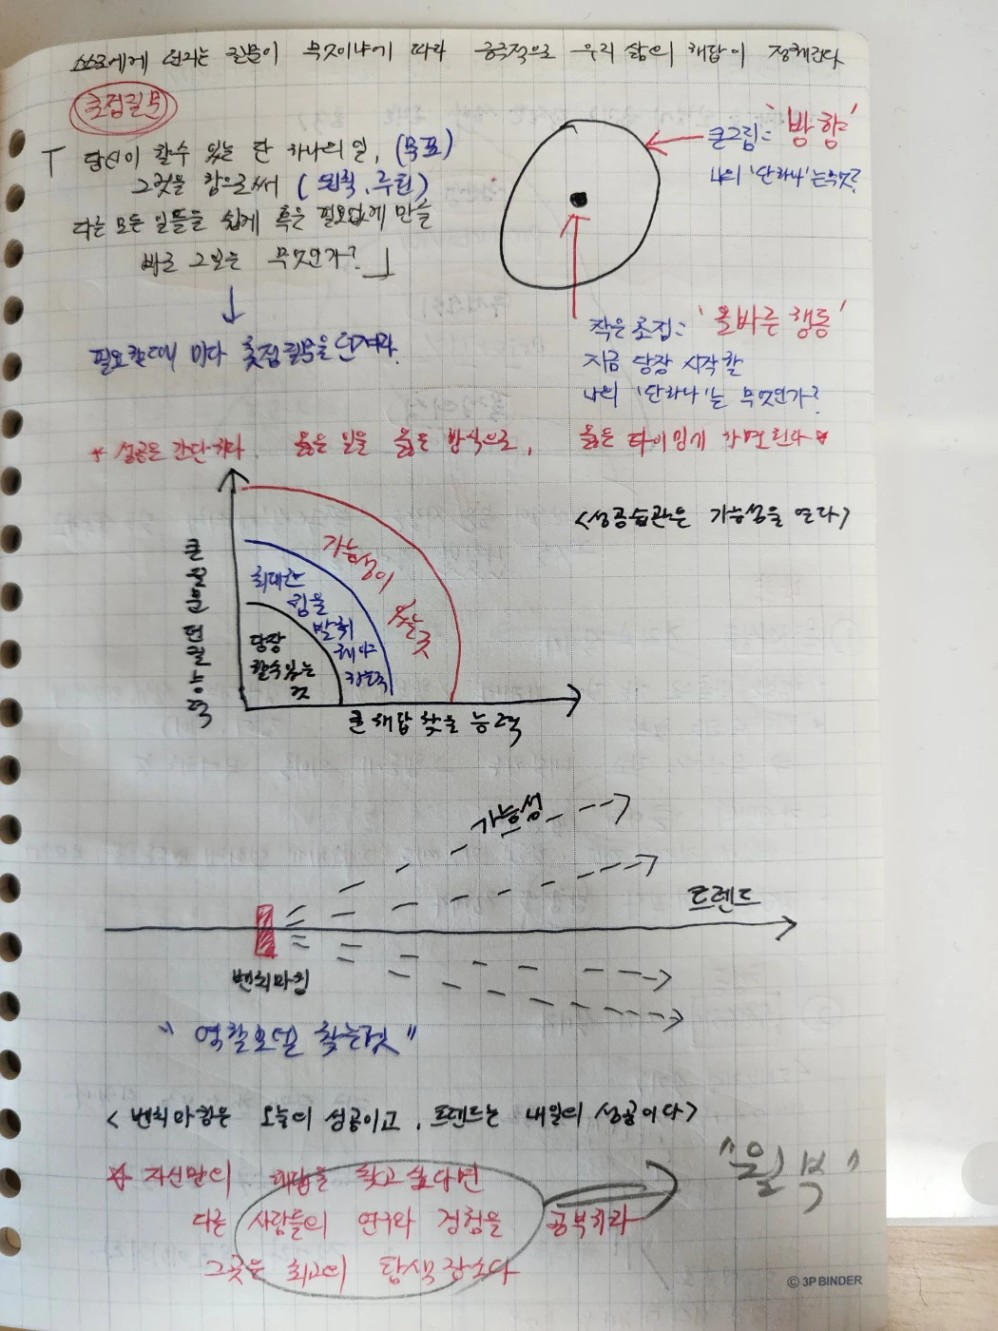 스스로에게 던지는 질문이 무엇이냐에 따라 궁극적으로 우리 삶의 해답이 정해진다
초점질문
「 당신이 할수 있는 단 하나의 일, (목표)
그것을 함으로써 (원칙, 루틴)
다른 모든 일들을 쉽게 혹은 필요없게 만들
바로 그 일은 무엇인가? 」
필요할때 마다 초점질문을 던져라.
큰그림: '방향'
나의 '단하나'는 무엇?
작은 초점: '올바른 행동'
지금 당장 시작할
나의 '단하나'는 무엇인가?
* 성공은 간단하다. 옳은 일을 옳은 방식으로, 옳은 타이밍에 하면 된다 *
<성공습관은 가능성을 연다>
큰 질문 던질
가능성이 있는 곳
최대한 힘을 발휘해야
당장 할수있는 것
큰 해답 찾을 능력
가능성
트렌드
벤치마킹
"역할모델 찾는것"
<벤치마킹은 오늘의 성공이고, 트렌드는 내일의 성공이다>
☆ 자신만의 해답을 찾고 싶다면
다른 사람들의 연구와 경험을 공부하라
그곳은 최고의 탐색장소다
"월부"
© 3P BINDER